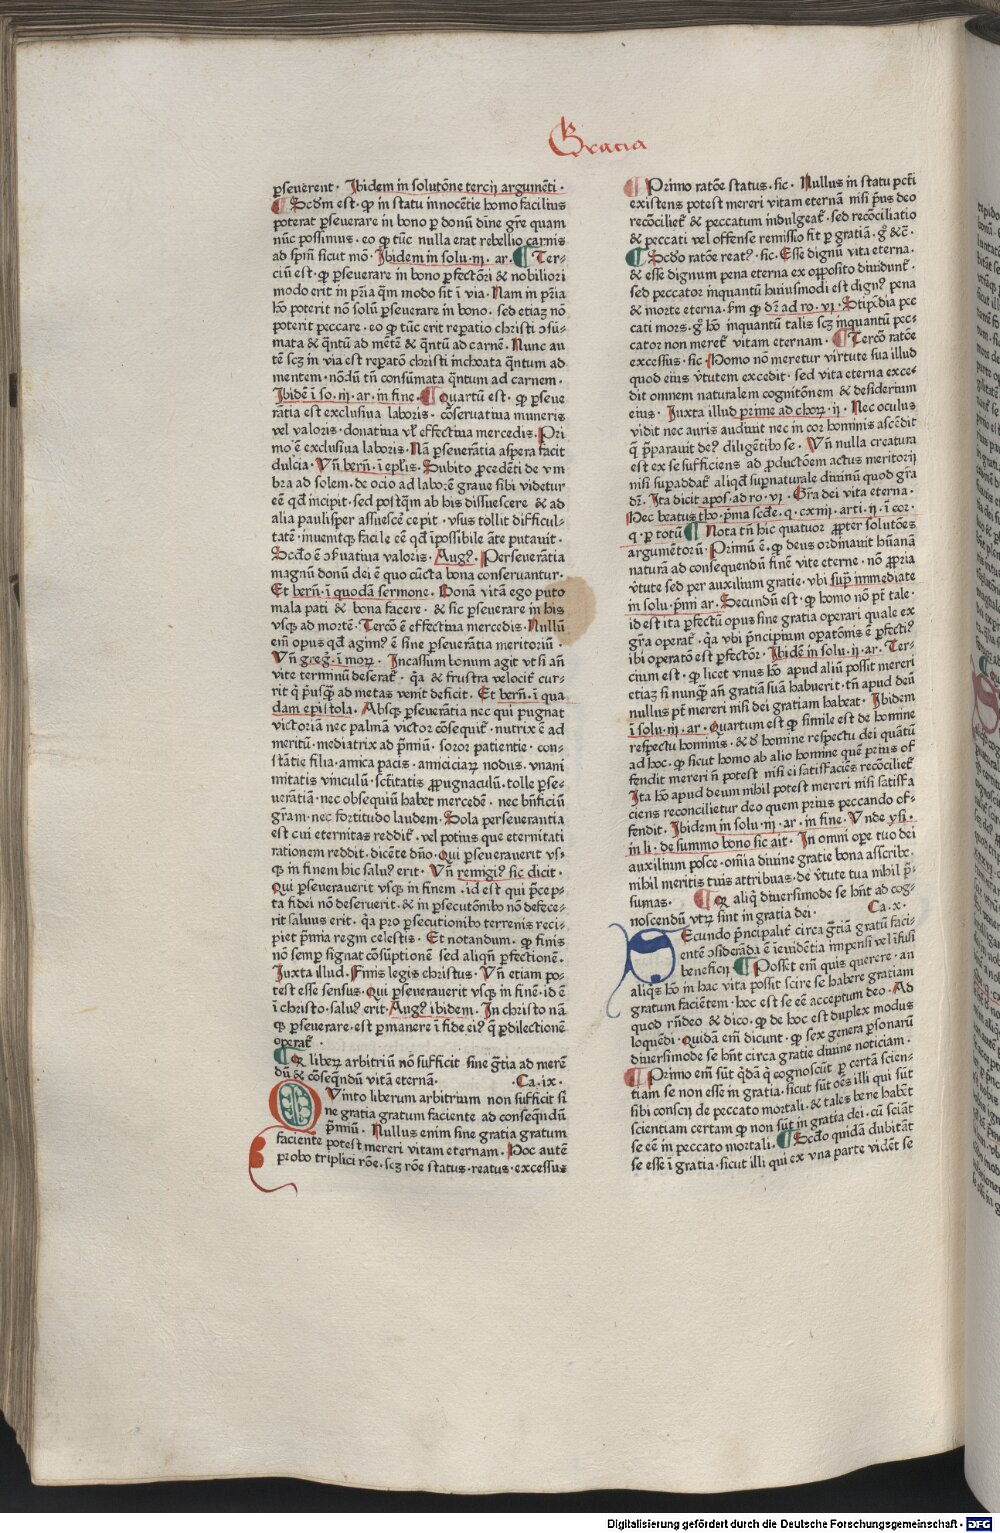 Gracia
ꝑseuerent · Ibidem in solutōne tercij argumēti ·
¶ Scdm̄ est · ꝙ in statu innocētie homo facilius
poterat ꝑseuerare in bono ꝑ donū diīne grē quam
nūc possimus · eo ꝙ tūc nulla erat rebellio carnis
ad spm̄ sicut mō · Ibidem in solu · iij · ar · ¶ Ter-
ciū est · ꝙ ꝑseuerare in bono ꝑfectōri & nobiliori
modo erit in pr̄ia q̄m modo sit ī via · Nam in pr̄ia
hō poterit nō solū ꝑseuerare in bono · sed etiaꝫ nō
poterit peccare · eo ꝙ tūc erit repatio christi ↄsū-
mata & q̄ntū ad mētē & q̄ntū ad carnē · Nunc au
tē scꝫ in via est repatō christi inchoata q̄ntum ad
mentem · nōdū tn̄ consūmata q̄ntum ad carnem ·
Ibidē ī so · iij · ar · in fine · ¶ Quartū est · ꝙ pseue
rātia est exclusiua laboris · cōseruatiua muneris
vel valoris · donatiua vl̛ effectiua mercedis · Pri
mo ē exclusiua laboris · Nā ꝑseuerātia aspera facit
dulcia · Vn̄ bern̄ · ī ep̄lis · Subito ꝓcedēti de vm
bra ad solem · de ocio ad laborē graue sibi videtur
eē qd̄ incipit · sed postq̄m ab his dissuescere & ad
alia paulisper assuescē cepit · vsus tollit difficul-
tatē · inuenitqꝫ facile eē qd̄ īpossibile āte putauit ·
Scdo ē ↄseruatiua valoris · Augꝰ · Perseuerātia
magnū donū dei ē quo cūcta bona conseruantur ·
Et bern̄ · ī quodā sermone · Bonā vitā ego puto
mala pati & bona facere · & sic ꝑseuerare in his
vsqꝫ ad mortē · Tercō ē effectiua mercedis · Nullū
em̄ opus qd̄ agimꝰ ē sine ꝑseuerātia meritoriū ·
Vn̄ gregꝰ · ī moꝝ · Incassum bonum agit vt si an̄
vite terminū deserat᷑ · q̄a & frustra velocit᷑ cur-
rit q̄ pͥusqꝫ ad metas venit deficit · Et bern̄ · ī qua
dam epistola · Absqꝫ ꝑseuerātia nec qui pugnat
victoriā nec palmā victor cōsequit᷑ · nutrix ē ad
meritū · mediatrix ad p̄miū · soror patientie · con-
stātie filia · amica pacis · amiciciaꝝ nodus · vnani
mitatis vinculū · sctītatis ꝓpugnaculū · tolle ꝑse-
uerātiā · nec obsequiū habet mercedē · nec bn̄ficiū
gram · nec fortitudo laudem · Sola perseuerantia
est cui eternitas reddit᷑ · vel potius que eternitati
rationem reddit · dicēte dn̄o · Qui ꝑseuerauerit vs-
qꝫ in finem hic saluꝰ erit · Vn̄ remigiꝰ sic dicit ·
Qui ꝑseuerauerit vsqꝫ in finem · id est qui p̄cep-
ta fidei nō deseruerit · & in ꝑsecutōnibꝰ nō defece-
rit saluus erit · q̄a pro ꝑsecutionibꝰ terrenis reci-
piet p̄mia regni celestis · Et notandum · ꝙ finis
nō semꝑ signat cōsūptionē sed aliqn̄ ꝑfectionē ·
Iuxta illud · Finis legis christus · Vn̄ etiam po-
test esse sensus · Qui ꝑseuerauerit vsqꝫ in finē · id ē
ī christo · saluꝰ erit · Augꝰ ibidem · In christo nā
qꝫ ꝑseuerare · est ꝑmanere ī fide eiꝰ q̄ ꝑdilectionē
operat᷑ ·
¶ Qꝫ liberꝫ arbitriū nō sufficit sine gr̄tia ad merē
dū & cōseq̄ndū vitā eternā · Ca · ix ·
Quinto liberum arbitrium non sufficit si
ne gratia gratum faciente ad conseq̄ndū
p̄miū · Nullus enim sine gratia gratum
faciente potest mereri vitam eternam · Hoc autē
probo triplici rōe · scꝫ rōe status · reatus · excessus
¶ Primo ratōe status · sic · Nullus in statu pctī
existens potest mereri vitam eternā nisi pͥus deo
recōciliet᷑ & peccatum indulgeat᷑ · sed recōciliatio
& peccati vel offense remissio fit ꝑ gratiā · gͦ &c̄ ·
¶ Scdo ratōe reatꝰ · sic · Esse dignū vita eterna ·
& esse dignum pena eterna ex opposito diuidunt᷑ ·
sed peccator inquantū huiusmodi est dignꝰ pena
& morte eterna · fm̄ ꝙ dr̄ ad ro · vi · Stipēdia pec
cati mors · gͦ hō inquantū talis scꝫ inquantū pec-
cator non meret᷑ vitam eternam · ¶ Tercō ratōe
excessus · sic · Homo nō meretur virtute sua illud
quod eius v̛tutem excedit · sed vita eterna exce-
dit omnem naturalem cognitōnem & desiderium
eius · Iuxta illud prime ad choꝝ · ij · Nec oculus
vidit nec auris audiuit nec in cor hominis ascēdit
q̄ p̄parauit deꝰ diligētibꝰ se · Vn̄ nulla creatura
est ex se sufficiens ad ꝓductōem actus meritorij
nisi supaddat᷑ aliqd̄ supnaturale diuinū quod gr̄a
dr̄ · Ita dicit apos · ad ro · vi · Gr̄a dei vita eterna ·
Hec beatus tho · p̄ma scde · q · cxiiij · arti · ij · ī cor ·
q · ꝑ totū ¶ Nota tn̄ hic quatuor ꝓpter solutōes
argumētorū · Primū ē · ꝙ deus ordinauit hūanā
naturā ad consequendū finē vite eterne · nō ꝓpria
v̛tute sed per auxilium gratie · vbi supͣ immediate
in solu · pͥmi ar · Secundū est · ꝙ homo nō pt̄ tale ·
id est ita ꝑfectū opus sine gratia operari quale ex
gr̄a operat᷑ · q̄a vbi pͥncipium opatōnis ē ꝑfectiꝰ
ibi operatō est ꝑfectōr · Ibidē in solu · ij · ar · Ter-
cium est · ꝙ licet vnus hō apud aliū possit mereri
etiaꝫ si nunqꝫ an̄ gratiā suā habuerit · tn̄ apud deū
nullus pt̄ mereri nisi dei gratiam habeat · Ibidem
ī solu · iij · ar · Quartum est ꝙ simile est de homine
respectu hominis · & de homine respectu dei quātū
ad hoc · ꝙ sicut homo ab alio homine quē prius of
fendit mereri n̄ potest nisi ei satisfaciēs recōciliet᷑
Ita hō apud deum nihil potest mereri nisi satisfa
ciens reconcilietur deo quem prius peccando of-
fendit · Ibidem in solu · iij · ar · in fine · Vnde ysi ·
in li · de summo bono sic ait · In omni ope tuo dei
auxilium posce · om̄ia diuine gratie bona asscribe ·
nihil meritis tuis attribuas · de v̛tute tua nihil p̄-
sumas · ¶ Qꝫ aliqͥ diuersimode se hn̄t ad cog-
noscendū vtꝝ sint in gratia dei · Ca · x ·
Secundo pͥncipalit᷑ circa gr̄tiā gratū faci-
entē ↄsiderāda ē īeuidētia impensi vel īfusi
beneficij ¶ Posset em̄ quis querere · an
aliqͥs hō in hac vita possit scire se habere gratiam
gratum faciētem · hoc est se eē acceptum deo · Ad
quod rn̄deo & dico · ꝙ de hoc est duplex modus
loquēdi · Quidā em̄ dicunt · ꝙ sex genera ꝑsonarū
diuersimode se hn̄t circa gratie diuine noticiam ·
¶ Primo em̄ sūt qͥdā qͥ cognoscūt ꝑ certā scien-
tiam se non esse in gratia · sicut sūt oēs illi qui sūt
sibi conscij de peccato mortali · & tales bene habēt
scientiam certam ꝙ non sūt in gratia dei · cū sciāt
se eē in peccato mortali · ¶ Scdo quidā dubitāt
se esse ī gratia · sicut illi qui ex vna parte vidēt se
Digitalisierung gefördert durch die Deutsche Forschungsgemeinschaft - DFG